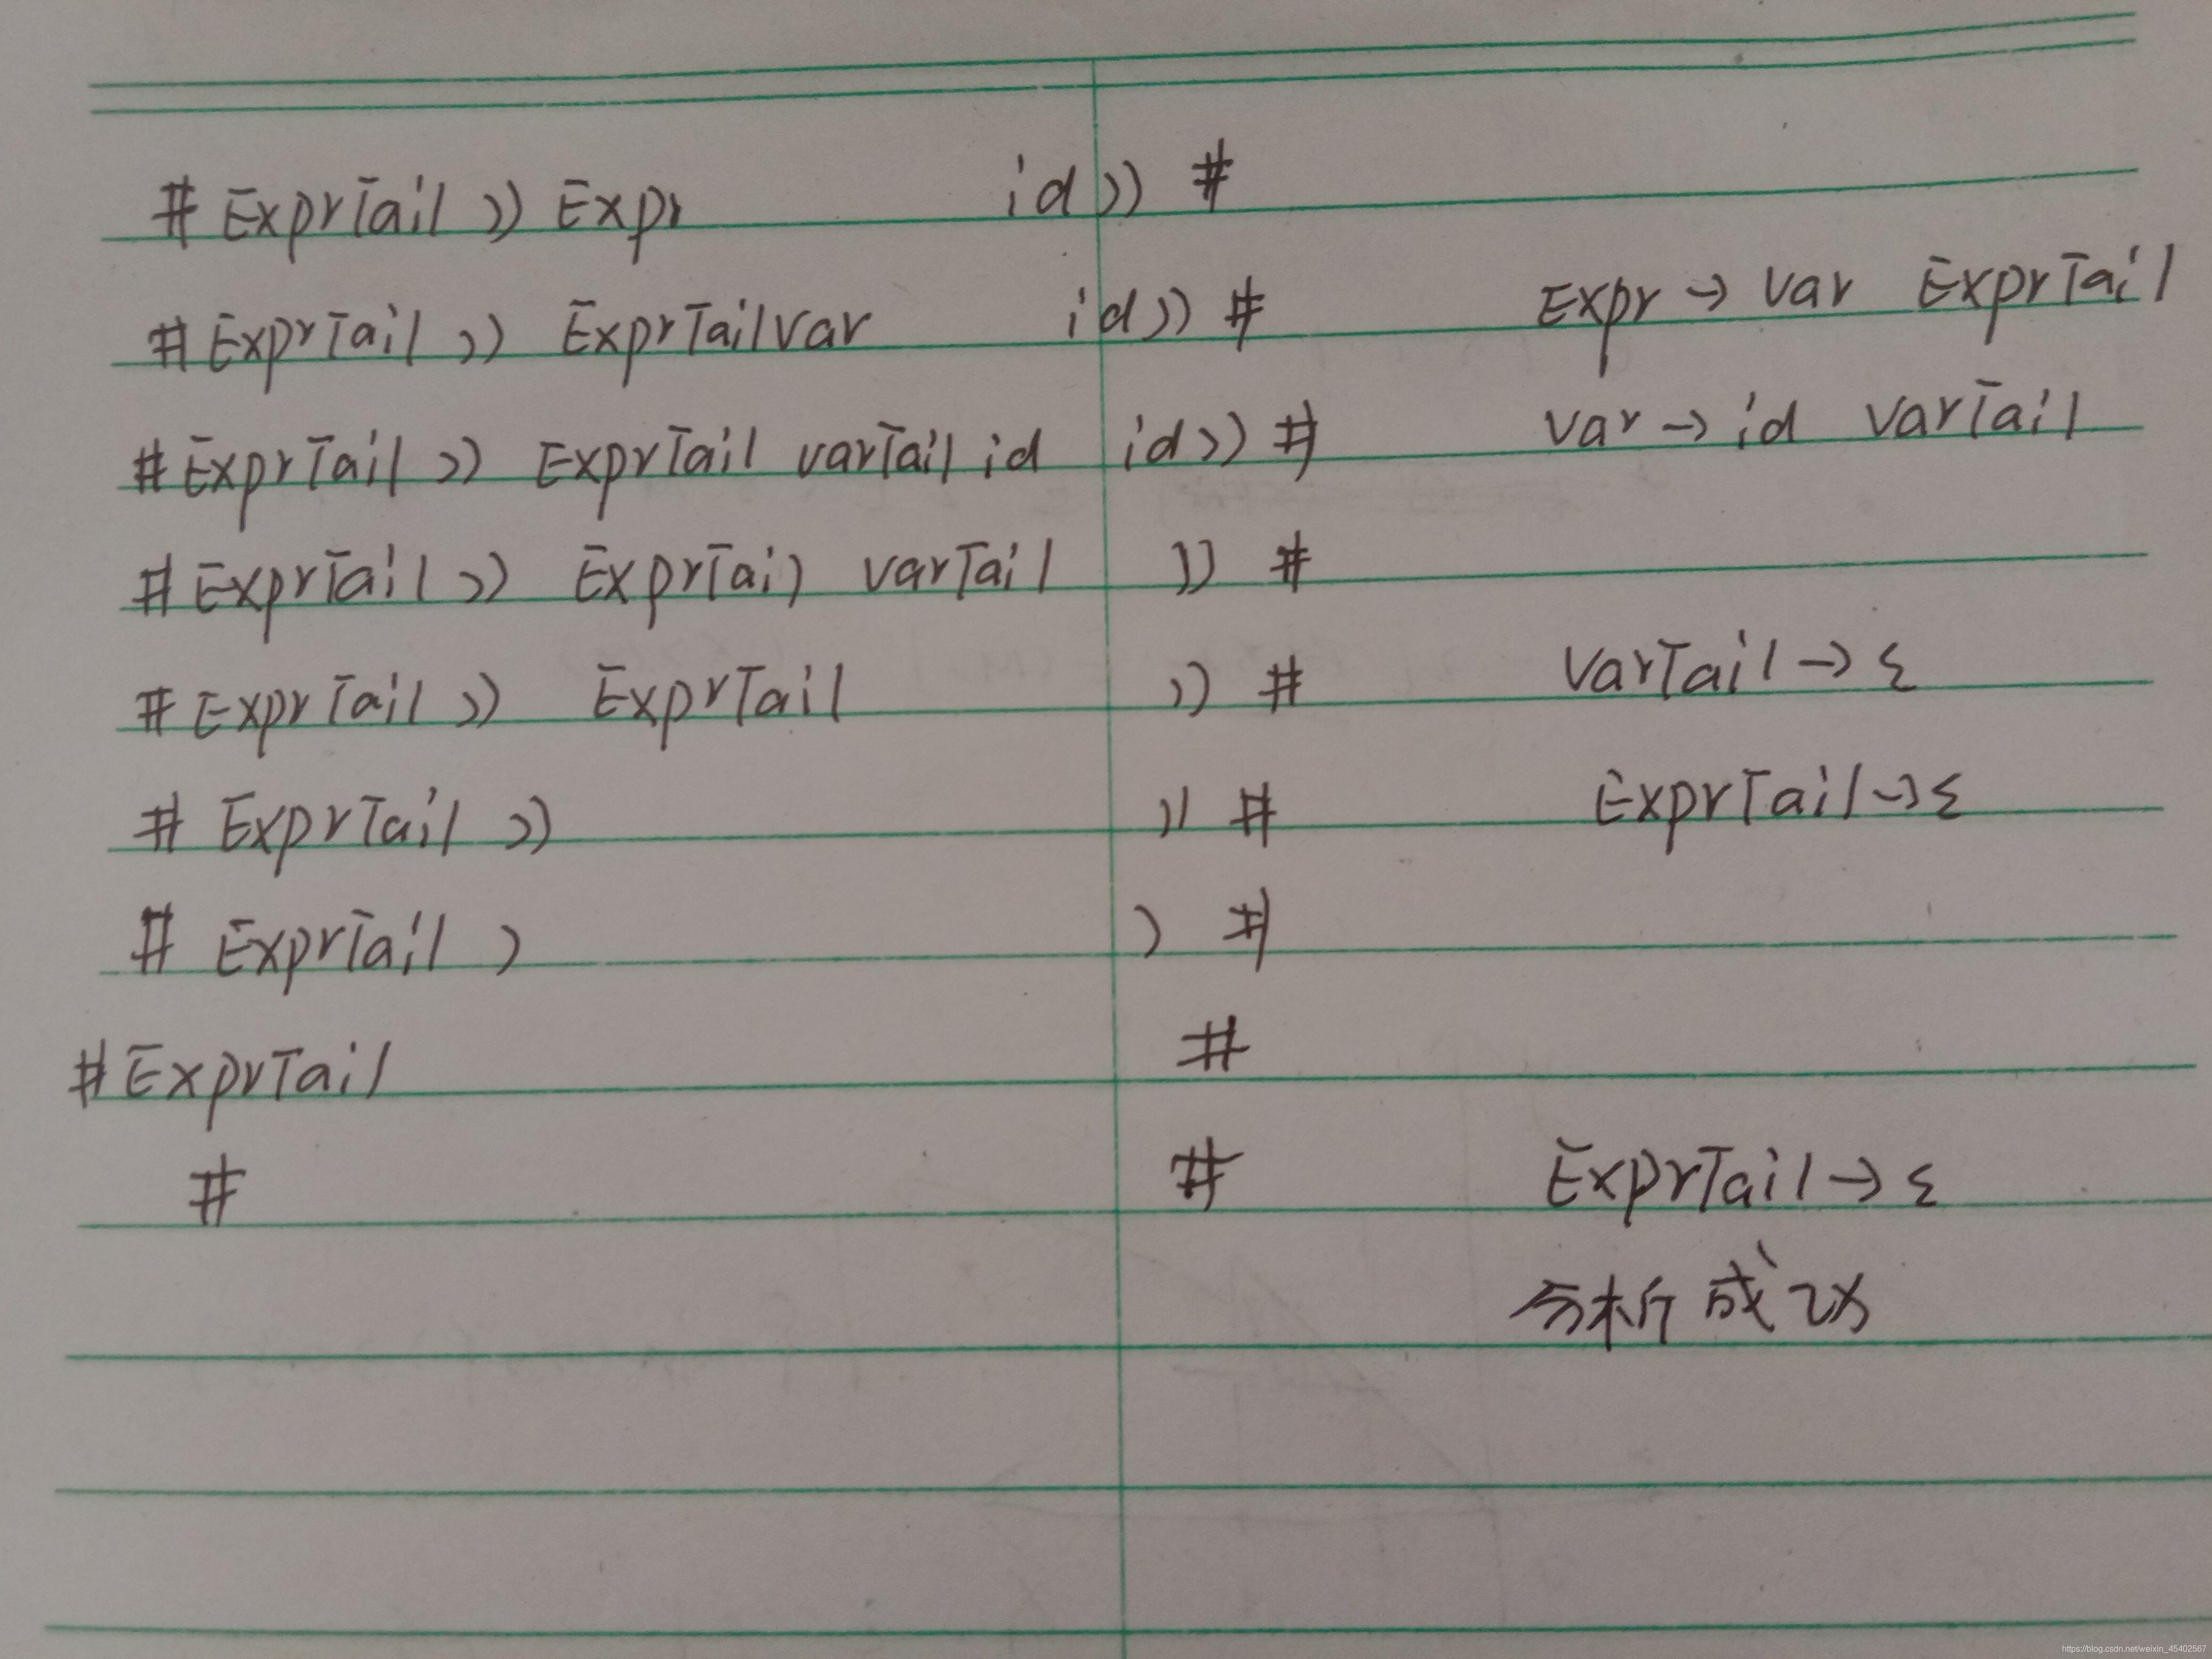 # ExprTail )) Expr id )) #
# ExprTail )) ExprTail var id )) # Expr → var ExprTail
# ExprTail )) ExprTail varTail id id )) # var → id varTail
# ExprTail )) ExprTail varTail )) #
# ExprTail )) ExprTail )) # varTail → ε
# ExprTail )) )) # ExprTail → ε
# ExprTail ) ) #
# ExprTail #
# # ExprTail → ε
分析成功
https://blog.csdn.net/weixin_45402567